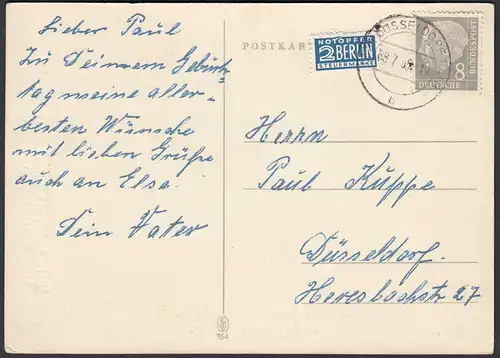 Lieber Paul
Zu Deinem Geburts
tag meine aller-
besten Wünsche
mit lieben Grüße
auch an Else.
Dein Vater
POSTKARTE
NOTOPFER
2 BERLIN
STEUERMARKE
DÜSSELDORF
b
8
DEUTSCHE
BUNDESPOST
Herrn
Paul Küppe
Düsseldorf.
Heresbachstr 27
754